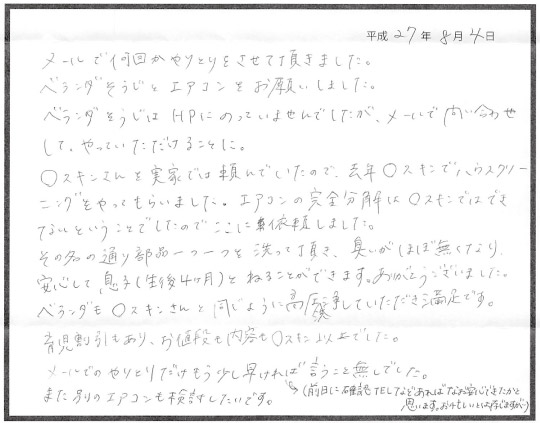 平成27年8月4日
メールで何回かやりとりをさせて頂きました。
ベランダそうじとエアコンをお願いしました。
ベランダそうじはHPにのっていませんでしたが、メールで問い合わせ
して、やっていただけることに。
〇スキンさんを実家では頼んでいたので、去年〇スキンでハウスクリー
ニングをやってもらいました。エアコンの完全分解は〇スキンではでき
ないということでしたのでここに依頼しました。
その名の通り部品一つ一つを洗って頂き、臭いがほぼ無くなり、
安心して息子(生後4ヶ月)とねることができます。ありがとうございました。
ベランダも〇スキンさんと同じように高圧洗浄していただき満足です。
育児割引もあり、お値段も内容も〇スキン以上でした。
メールでのやりとりだけもう少し早ければ言うこと無しでした。
また別のエアコンも検討したいです。
(前日に確認TELなどあればなお安心できたかと
思います。おいそがしいとは存じますが…)